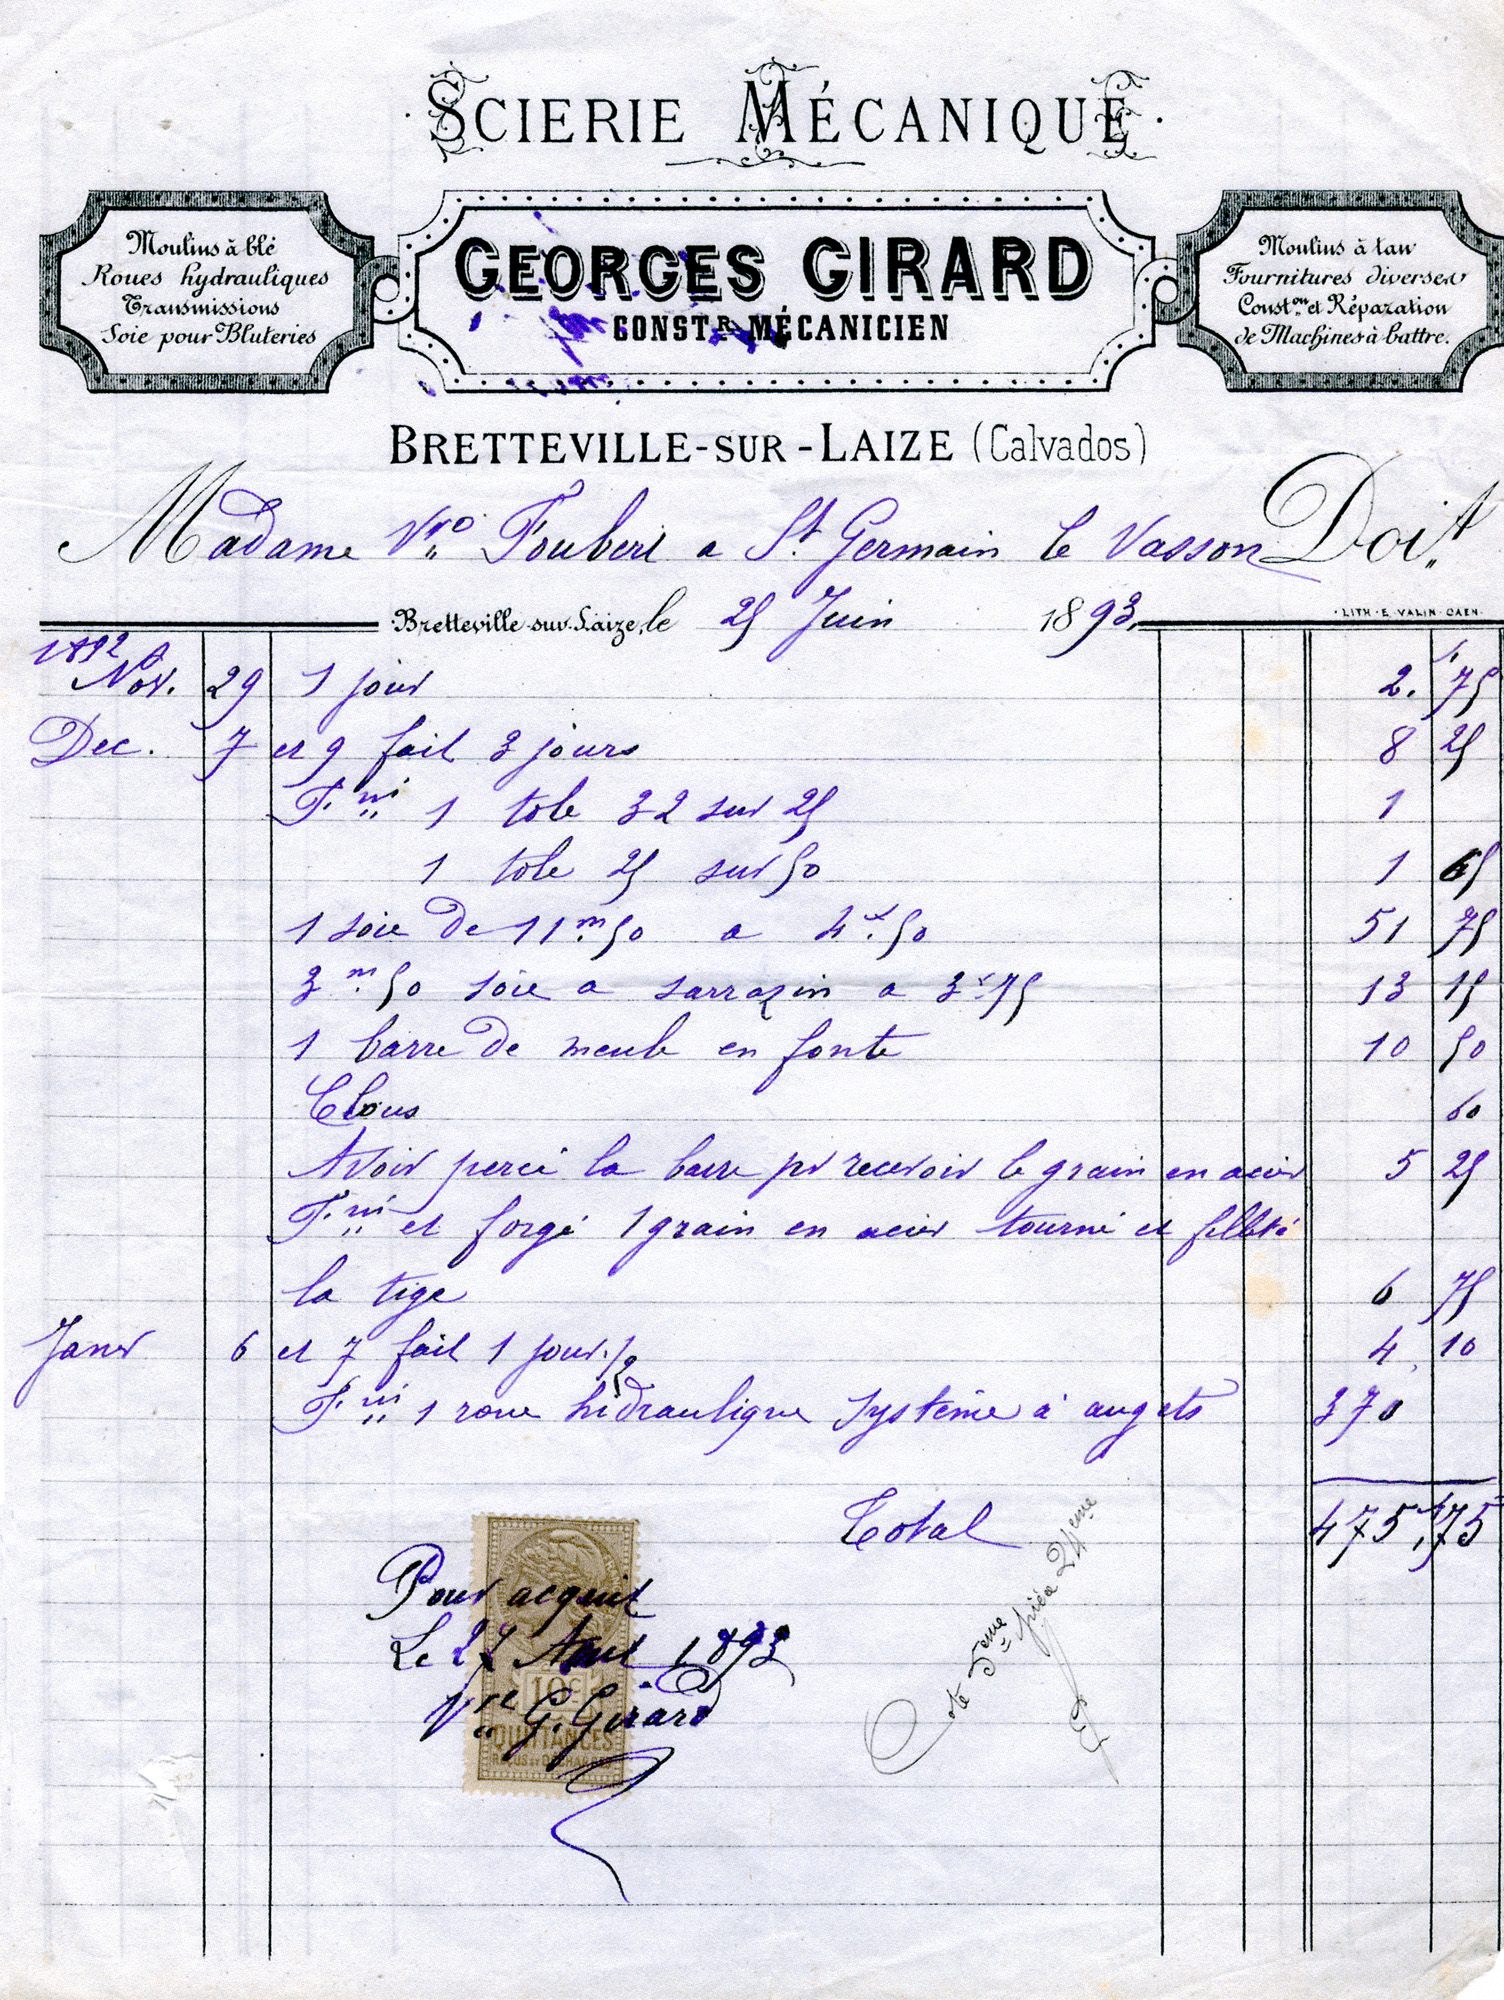 SCIERIE MÉCANIQUE
Moulins à blé
Roues hydrauliques
Transmissions
Soie pour Bluteries
GEORGES GIRARD
CONST.R MÉCANICIEN
Moulins à tan
Fournitures diverses
Const.on et Réparation
de Machines à battre.
BRETTEVILLE-SUR-LAIZE (Calvados)
Madame Vve Foubert a St Germain le Vasson Doit
Bretteville-sur-Laize, le 25 Juin 1893
LITH. E. VALIN. CAEN.
1892
Nov. 29 1 jour 2. 75
Dec. 7 et 9 fait 3 jours 8 25
F.ni 1 tole 32 sur 25 1
1 tole 25 sur 50 1 65
1 soie de 11m.50 a 4f.50 51 75
3m.50 soie a sarrazin a 3f75 13 15
1 barre de meule en fonte 10 50
Clous 60
Avoir percé la barre pr recevoir le grain en acier 5 25
F.ni et forgé 1 grain en acier tourné et filleté
la tige 6 75
Janvr 6 et 7 fait 1 jour 1/2 4 10
F.ni 1 roue hidraulique système à augets 370
Total 475f,75
Pour acquit
Le 27 1893
Vve G. Girard
10c
QUITTANCES
REÇUS ET DÉCHARGES
Cote 5eme pièce 24eme